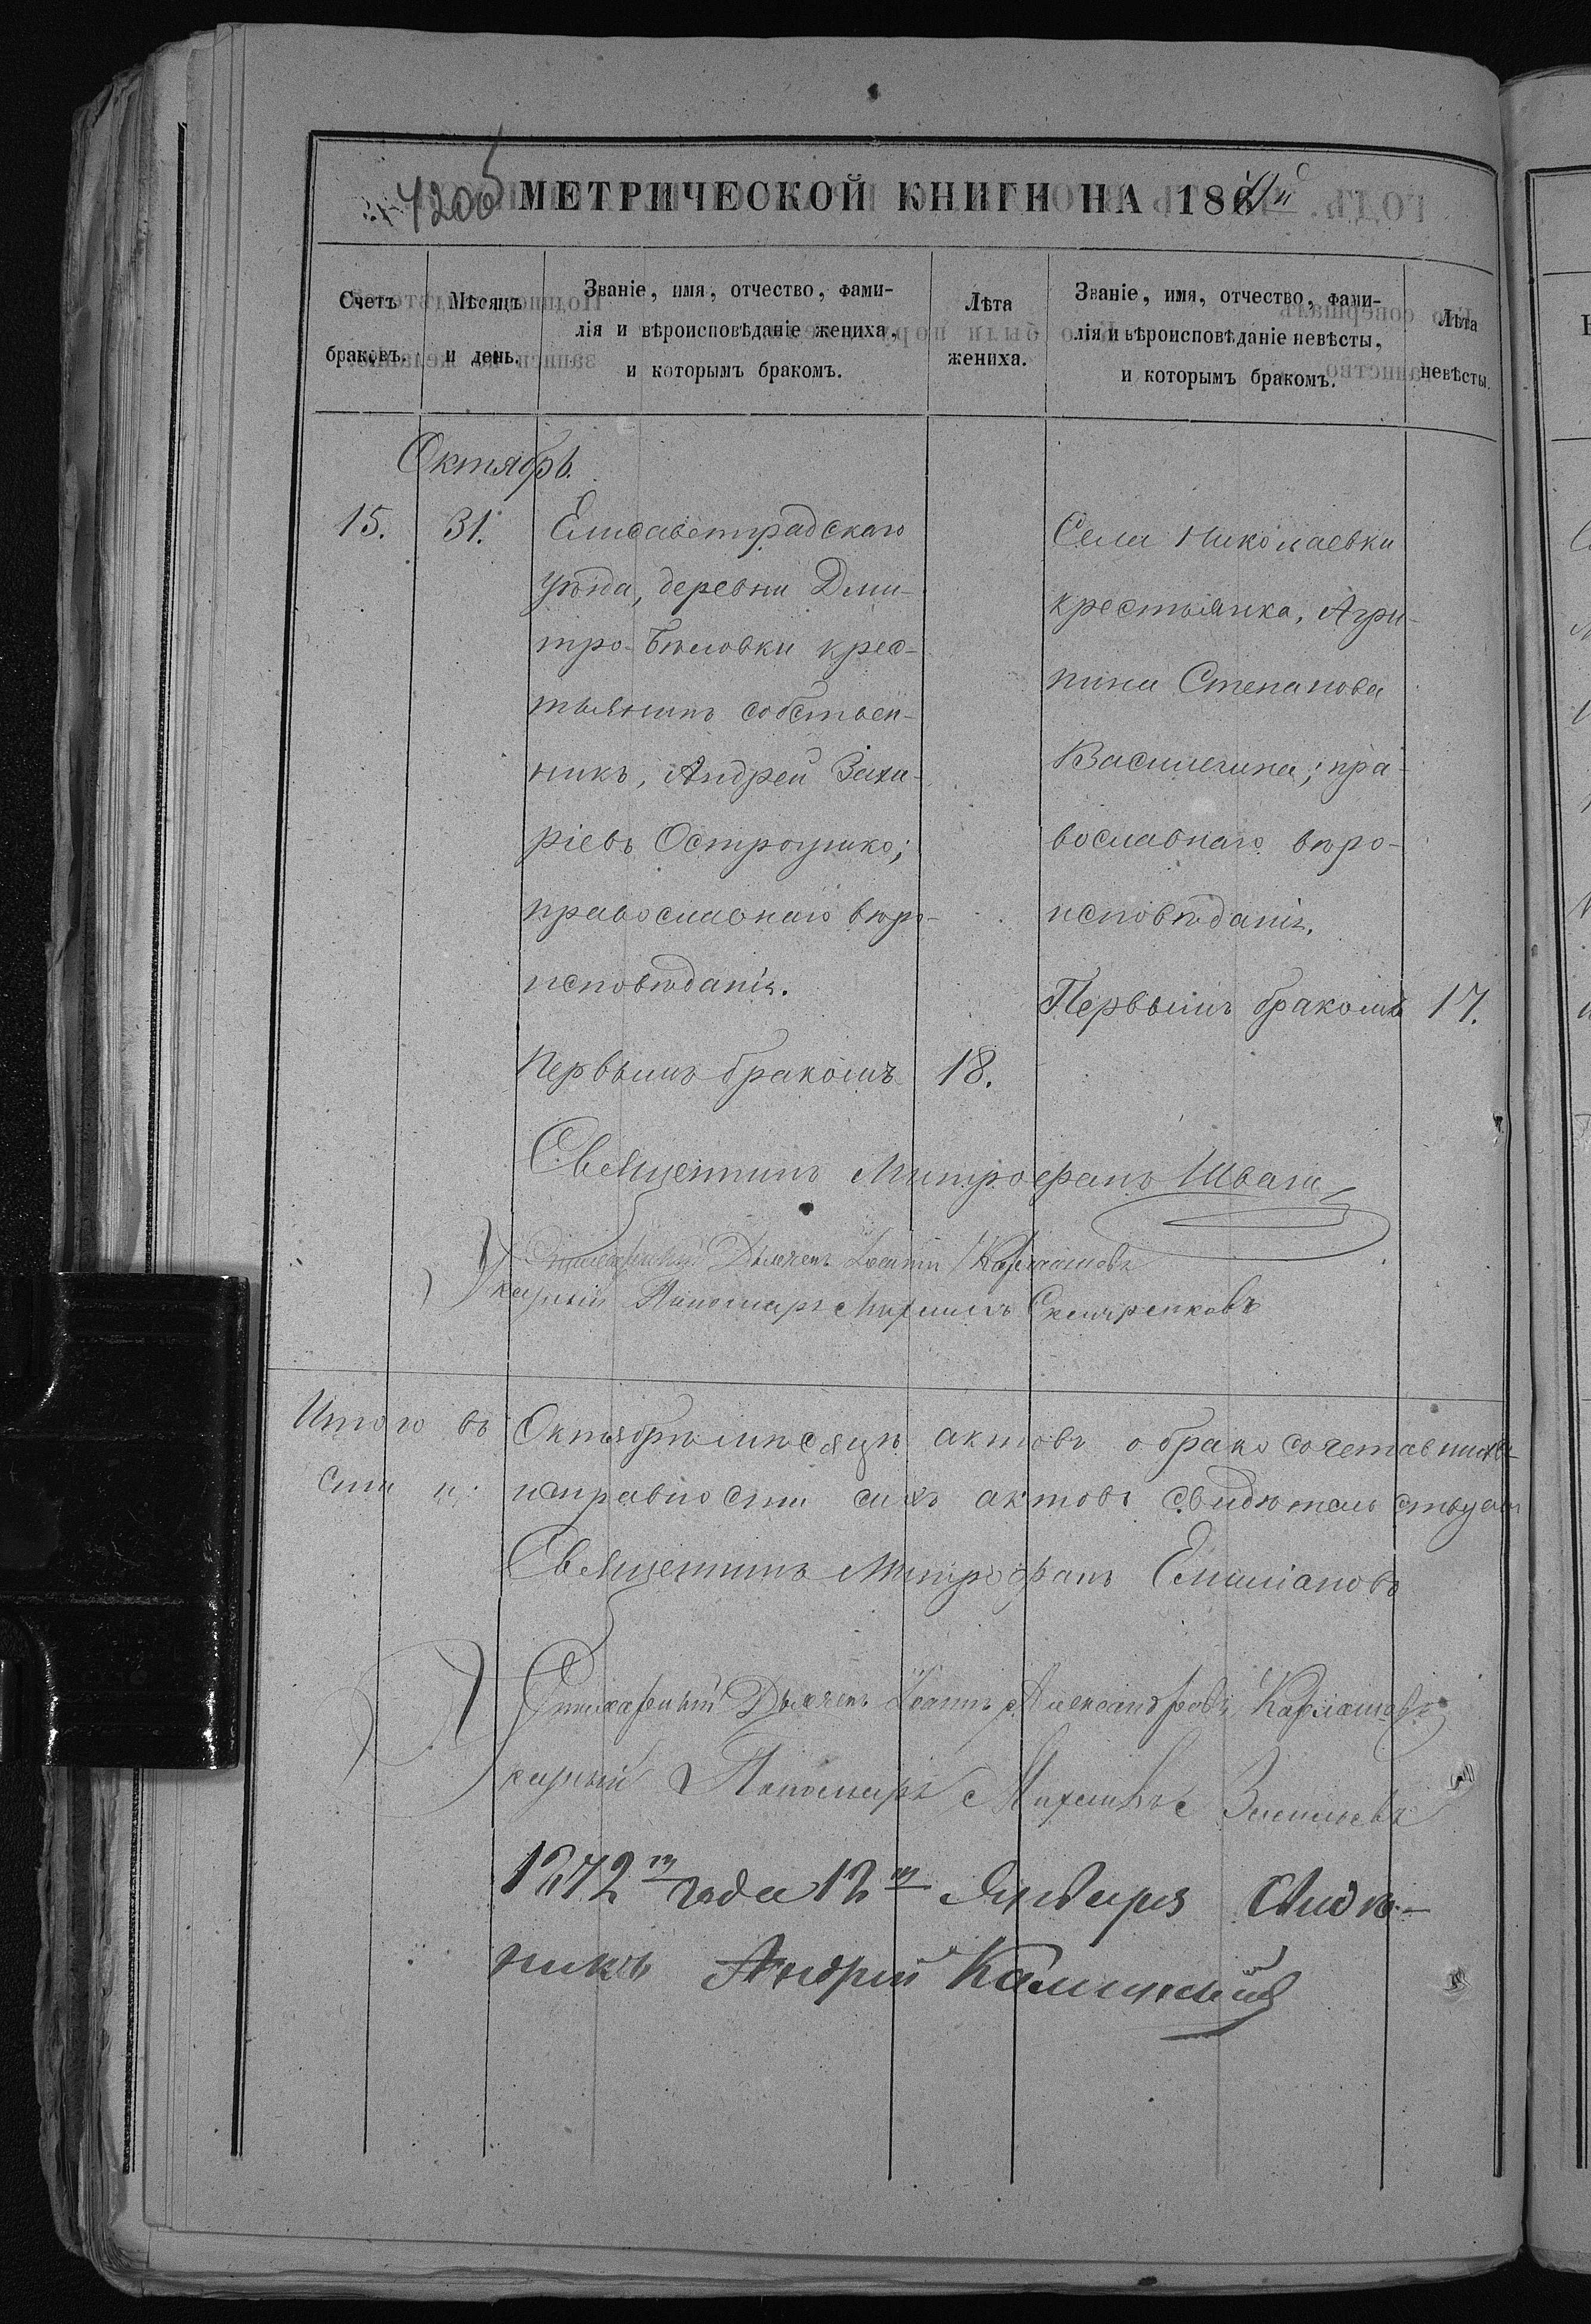 7200
МЕТРИЧЕСКОЙ КНИГИ НА 186
Счетъ браковъ.
Мѣсяцъ и день.
Званіе, имя, отчество, фами-
лія и вѣроисповѣданіе жениха,
и которымъ бракомъ.
Лѣта жениха.
Званіе, имя, отчество, фами-
лія и вѣроисповѣданіе невѣсты,
и которымъ бракомъ.
Лѣта невѣсты.
Октябрь.
15.
31.
Елисаветградскаго
уѣзда, деревни Дми-
тро-Бѣловки крес-
тьянинъ собствен-
никъ, Андрей Заха-
ріевъ Остроушко;
православнаго вѣро-
исповѣданія.
Первымъ бракомъ
18.
Села Николаевки
крестьянка, Агри-
пина Степанова
Василегина; пра-
вославнаго вѣро-
исповѣданія.
Первымъ бракомъ
17.
Священникъ Митрофанъ
Стихарный Дьячекъ Іоаннъ Карлашовъ
Указный Пономарь Михаилъ
Итого въ Октябрѣ мѣсяцѣ актовъ о бракосочетавшихся
исправности сихъ актовъ свидѣтельствуемъ
Священникъ Митрофанъ
Стихарный Дьячекъ Іоаннъ Александровъ Карлашовъ
Указный Пономарь Михаилъ
1872го года 12го Января
Андрей